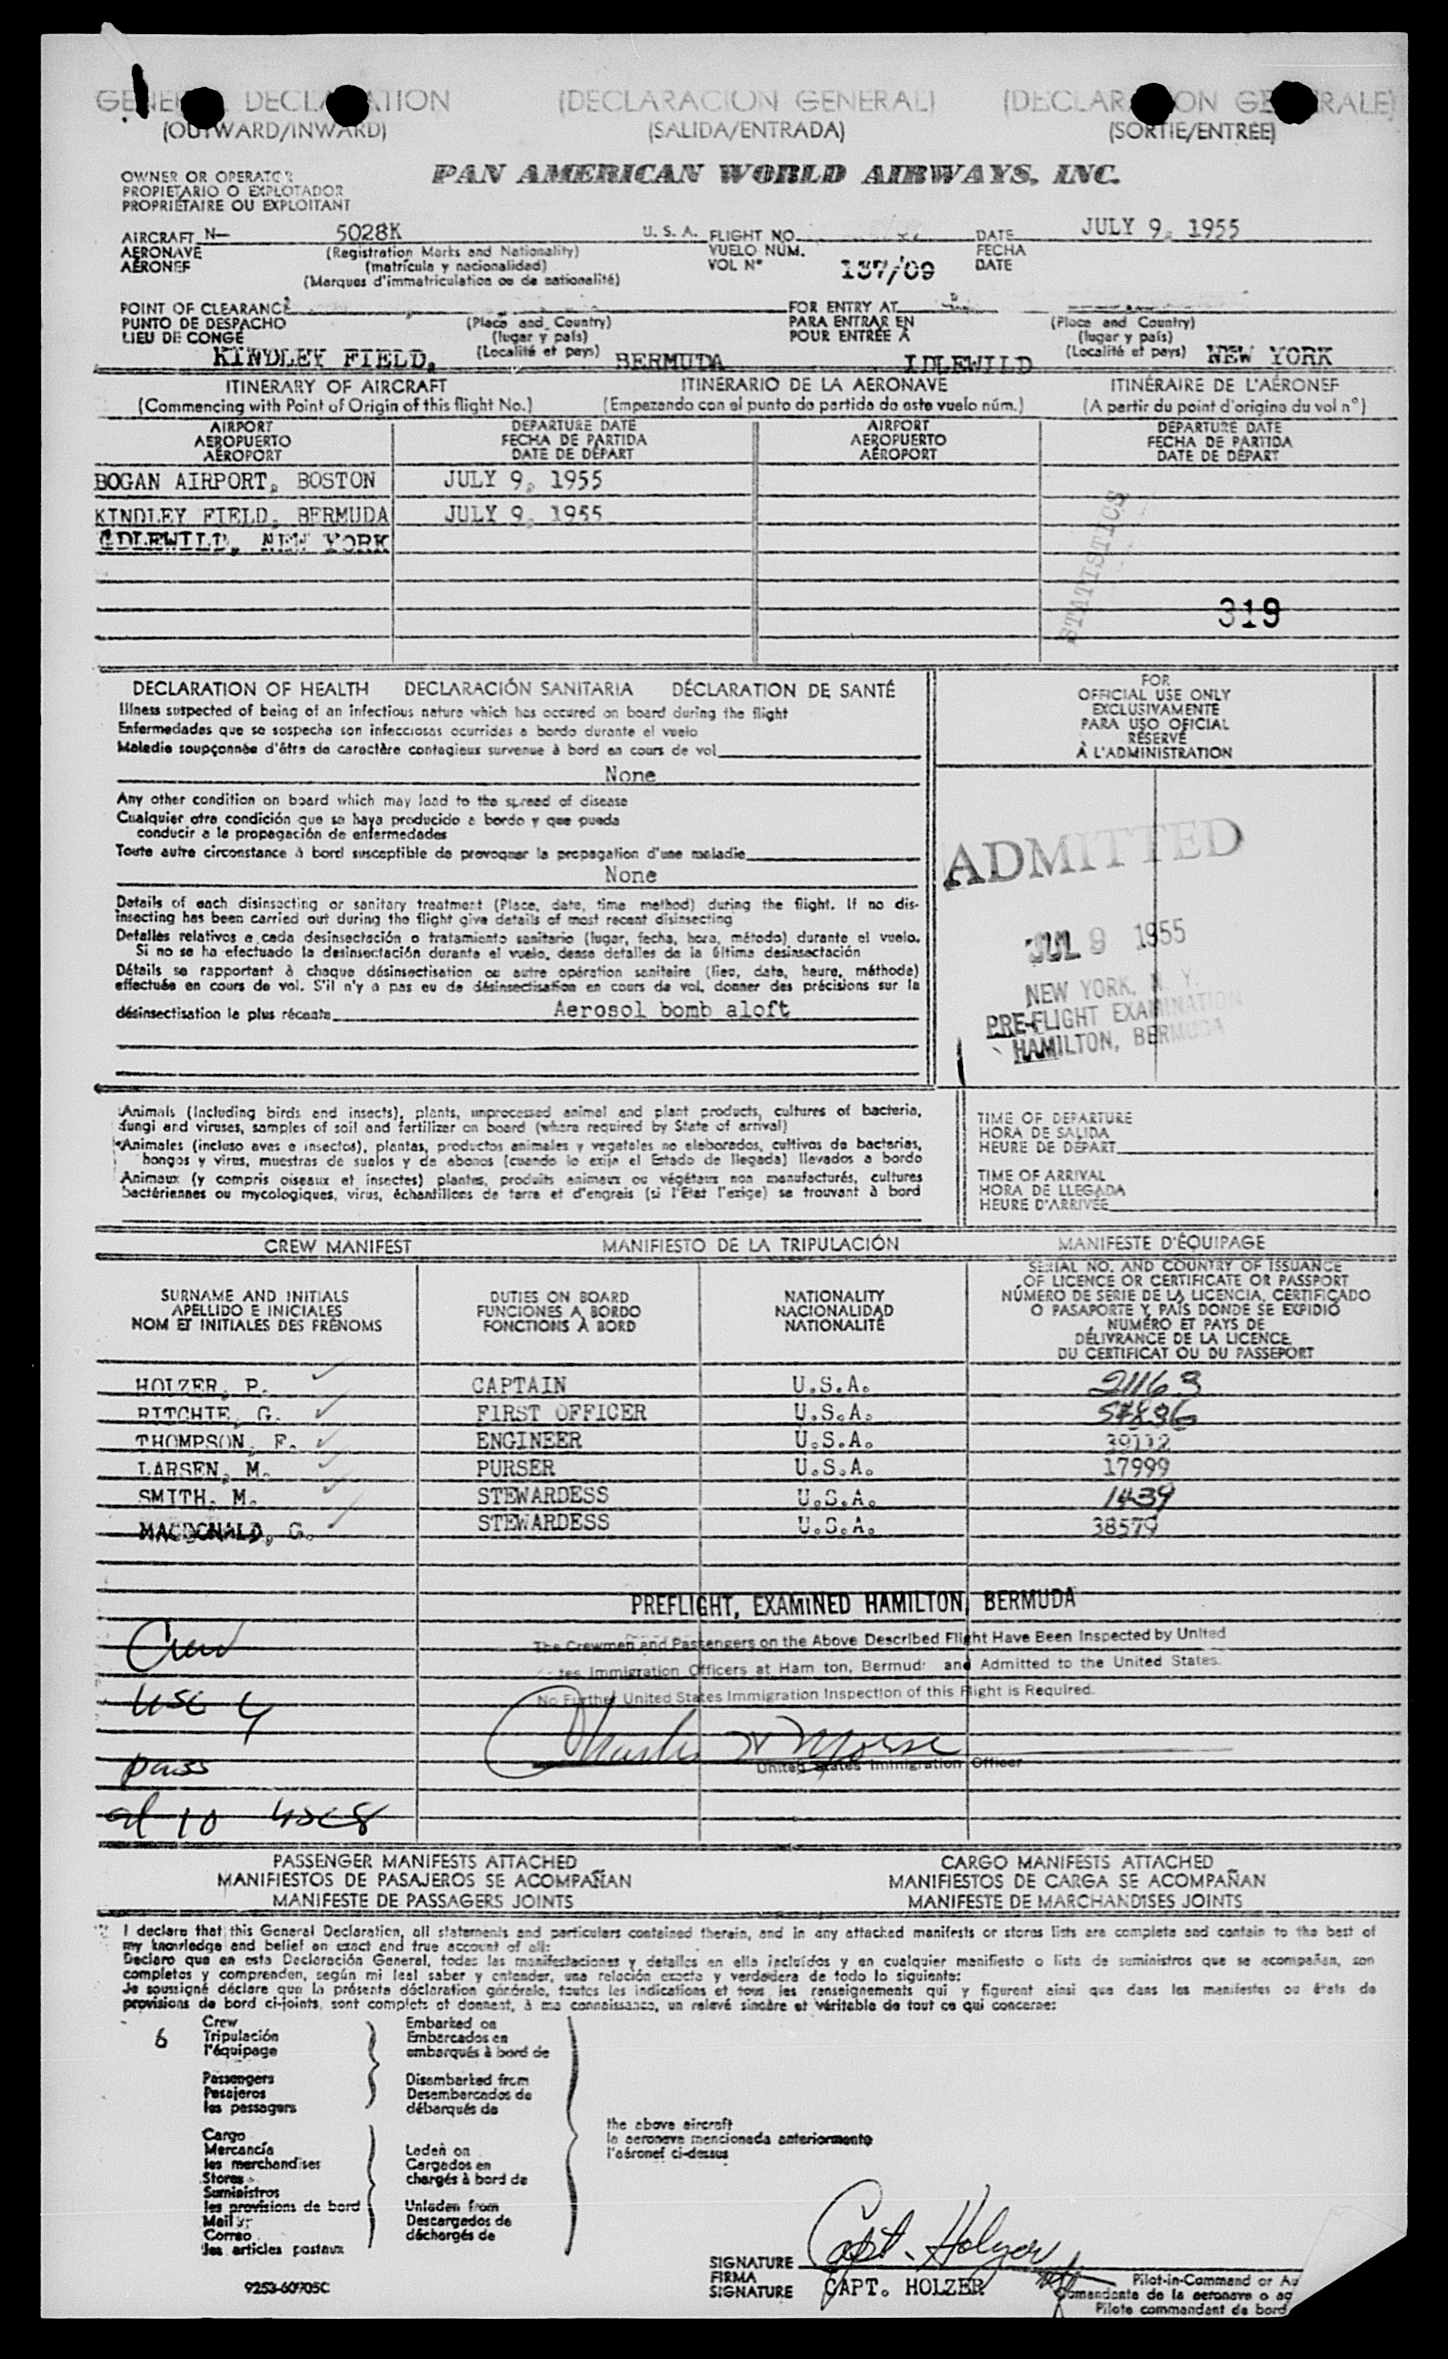 GENERAL DECLARATION (DECLARACION GENERAL) (DECLARATION GENERALE)
(OUTWARD/INWARD) (SALIDA/ENTRADA) (SORTIE/ENTRÉE)
OWNER OR OPERATOR
PROPIETARIO O EXPLOTADOR
PROPRIÉTAIRE OU EXPLOITANT
PAN AMERICAN WORLD AIRWAYS, INC.
AIRCRAFT N- 5028K U. S. A. FLIGHT NO. DATE JULY 9, 1955
AERONAVE (Registration Marks and Nationality) VUELO NÚM. FECHA
AÉRONEF (matrícula y nacionalidad) VOL N° 137/09 DATE
(Marques d'immatriculation ou de nationalité)
POINT OF CLEARANCE FOR ENTRY AT
PUNTO DE DESPACHO (Place and Country) PARA ENTRAR EN (Place and Country)
LIEU DE CONGÉ (lugar y país) POUR ENTRÉE À (lugar y país)
KINDLEY FIELD, (Localité et pays) BERMUDA IDLEWILD (Localité et pays) NEW YORK
ITINERARY OF AIRCRAFT ITINERARIO DE LA AERONAVE ITINÉRAIRE DE L'AÉRONEF
(Commencing with Point of Origin of this flight No.) (Empezando con el punto de partida de este vuelo núm.) (A partir du point d'origine du vol n°)
AIRPORT DEPARTURE DATE AIRPORT DEPARTURE DATE
AEROPUERTO FECHA DE PARTIDA AEROPUERTO FECHA DE PARTIDA
AÉROPORT DATE DE DÉPART AÉROPORT DATE DE DÉPART
BOGAN AIRPORT, BOSTON JULY 9, 1955
KINDLEY FIELD, BERMUDA JULY 9, 1955
IDLEWILD, NEW YORK
STATISTICS
319
DECLARATION OF HEALTH DECLARACIÓN SANITARIA DÉCLARATION DE SANTÉ
Illness suspected of being of an infectious nature which has occured on board during the flight
Enfermedades que se sospecha son infecciosas ocurridas a bordo durante el vuelo
Maladie soupçonnée d'être de caractère contagieux survenue à bord en cours de vol
None
Any other condition on board which may lead to the spread of disease
Cualquier otra condición que se haya producido a bordo y que pueda
conducir a la propagación de enfermedades
Toute autre circonstance à bord susceptible de provoquer la propagation d'une maladie
None
Details of each disinsecting or sanitary treatment (Place, date, time method) during the flight. If no dis-
insecting has been carried out during the flight give details of most recent disinsecting
Detalles relativos a cada desinsectación o tratamiento sanitario (lugar, fecha, hora, método) durante el vuelo.
Si no se ha efectuado la desinsectación durante el vuelo, dense detalles de la última desinsectación
Détails se rapportant à chaque désinsectisation ou autre opération sanitaire (lieu, date, heure, méthode)
effectuée en cours de vol. S'il n'y a pas eu de désinsectisation en cours de vol, donner des précisions sur la
désinsectisation la plus récente Aerosol bomb aloft
FOR
OFFICIAL USE ONLY
EXCLUSIVAMENTE
PARA USO OFICIAL
RÉSERVÉ
À L'ADMINISTRATION
ADMITTED
JUL 9 1955
NEW YORK, N. Y.
PRE-FLIGHT EXAMINATION
HAMILTON, BERMUDA
Animals (Including birds and insects), plants, unprocessed animal and plant products, cultures of bacteria,
fungi and viruses, samples of soil and fertilizer on board (where required by State of arrival)
Animales (incluso aves e insectos), plantas, productos animales y vegetales no elaborados, cultivos de bacterias,
hongos y virus, muestras de suelos y de abonos (cuando lo exija el Estado de llegada) llevados a bordo
Animaux (y compris oiseaux et insectes) plantes, produits animaux ou végétaux non manufacturés, cultures
bactériennes ou mycologiques, virus, échantillons de terre et d'engrais (si l'État l'exige) se trouvant à bord
TIME OF DEPARTURE
HORA DE SALIDA
HEURE DE DÉPART
TIME OF ARRIVAL
HORA DE LLEGADA
HEURE D'ARRIVÉE
CREW MANIFEST MANIFIESTO DE LA TRIPULACIÓN MANIFESTE D'ÉQUIPAGE
SURNAME AND INITIALS
APELLIDO E INICIALES
NOM ET INITIALES DES PRÉNOMS
DUTIES ON BOARD
FUNCIONES A BORDO
FONCTIONS À BORD
NATIONALITY
NACIONALIDAD
NATIONALITÉ
SERIAL NO. AND COUNTRY OF ISSUANCE
OF LICENCE OR CERTIFICATE OR PASSPORT
NÚMERO DE SERIE DE LA LICENCIA, CERTIFICADO
O PASAPORTE Y PAÍS DONDE SE EXPIDIÓ
NUMÉRO ET PAYS DE
DÉLIVRANCE DE LA LICENCE,
DU CERTIFICAT OU DU PASSEPORT
HOLZER, P. CAPTAIN U.S.A. 21163
RITCHIE, G. FIRST OFFICER U.S.A. 57896
THOMPSON, F. ENGINEER U.S.A. 39112
LARSEN, M. PURSER U.S.A. 17999
SMITH, M. STEWARDESS U.S.A. 1439
MACDONALD, G. STEWARDESS U.S.A. 38579
PREFLIGHT, EXAMINED HAMILTON, BERMUDA
The Crewmen and Passengers on the Above Described Flight Have Been Inspected by United
tes Immigration Officers at Ham ton, Bermud and Admitted to the United States.
No Further United States Immigration Inspection of this Flight is Required.
Charles W Morse
United States Immigration Officer
Crew
usc 4
pass
al 10 usc 8
PASSENGER MANIFESTS ATTACHED CARGO MANIFESTS ATTACHED
MANIFIESTOS DE PASAJEROS SE ACOMPAÑAN MANIFIESTOS DE CARGA SE ACOMPAÑAN
MANIFESTE DE PASSAGERS JOINTS MANIFESTE DE MARCHANDISES JOINTS
I declare that this General Declaration, all statements and particulars contained therein, and in any attached manifests or stores lists are complete and contain to the best of
my knowledge and belief an exact and true account of all:
Declaro que en esta Declaración General, todas las manifestaciones y detalles en ella incluídos y en cualquier manifiesto o lista de suministros que se acompañan, son
completos y comprenden, según mi leal saber y entender, una relación exacta y verdadera de todo lo siguiente:
Je soussigné déclare que la présente déclaration générale, toutes les indications et tous les renseignements qui y figurent ainsi que dans les manifestes ou états de
provisions de bord ci-joints, sont complets et donnent, à ma connaissance, un relevé sincère et véritable de tout ce qui concerne:
6
Crew
Tripulación
l'équipage
Passengers
Pasajeros
les passagers
Cargo
Mercancía
les merchandises
Stores
Suministros
les provisions de bord
Mail
Correo
les articles postaux
Embarked on
Embarcados en
embarqués à bord de
Disembarked from
Desembarcados de
débarqués de
Laden on
Cargados en
chargés à bord de
Unladen from
Descargados de
déchargés de
the above aircraft
la aeronave mencionada anteriormente
l'aéronef ci-dessus
Capt. Holzer
SIGNATURE
FIRMA
SIGNATURE CAPT. HOLZER
Pilot-in-Command or Au
Comandante de la aeronave o ag
Pilote commandant de bord
9253-60705C